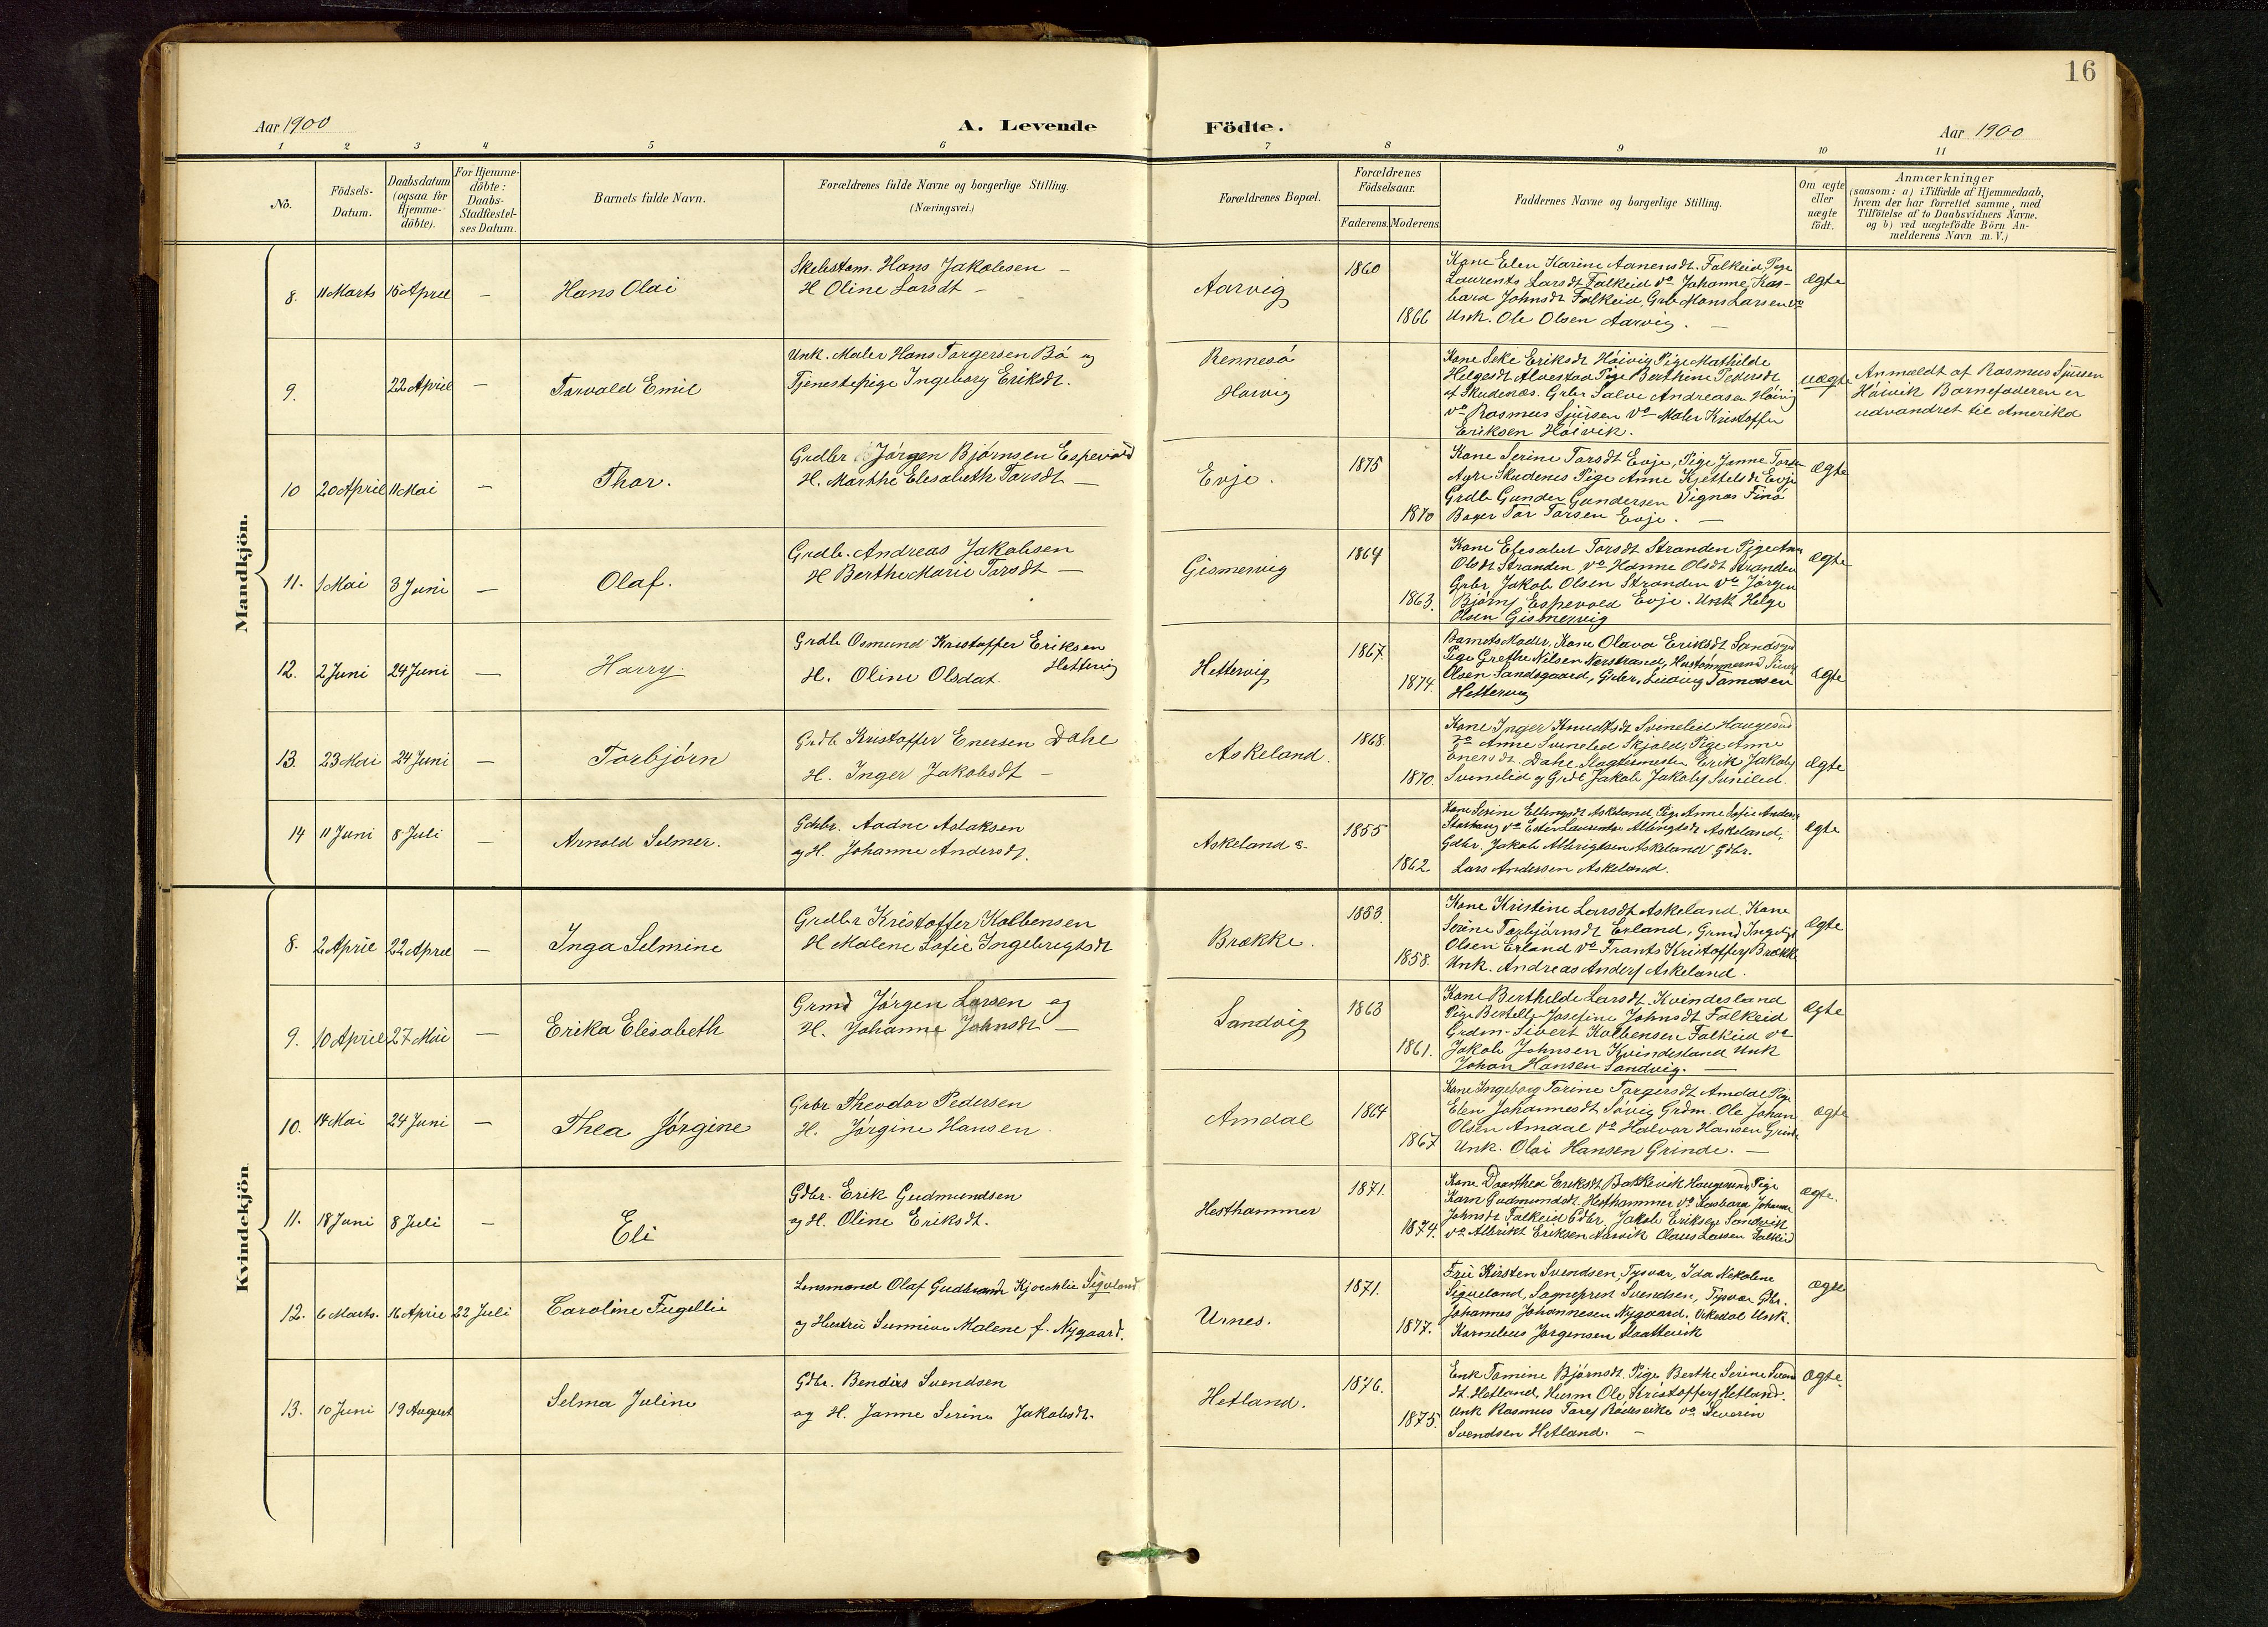 16
Aar 1900
A. Levende
Födte.
Aar 1900
1 2 3 4 5 6 7 8 9 10 11
No.
Födsels-
Datum.
Daabsdatum
(ogsaa for
Hjemme-
döbte).
For Hjemme-
döbte:
Daabs-
Stadfæstel-
ses Datum.
Barnets fulde Navn.
Forældrenes fulde Navne og borgerlige Stilling.
(Næringsvei.)
Forældrenes Bopæl.
Forældrenes
Födselsaar.
Faderens. Moderens.
Faddernes Navne og borgerlige Stilling.
Om ægte
eller
uægte
födt.
Anmærkninger
(saasom: a) i Tilfælde af Hjemmedaab,
hvem der har forrettet samme, med
Tilföielse af to Daabsvidners Navne.
og b) ved uægtefödte Börn An-
melderens Navn m. V.)
Mandkjön.
8. 11 Marts 16 April — Hans Olai
Hans Jakobsen —
H Oline Larsdt —
Aarvig
1860
1866
Kone Elen Karine Aanensdt. Falkeid, Pige
Laurentz Larsdt Falkeid do Johanne Kas-
bara Johnsdt Falkeid, Grb. Mons Larsen do
Unk. Ole Olsen Aarvig. —
ægte
9. 22 April — Torvald Emil
Unk. Maler Hans Torgersen Bö og
Tjenestepige Ingeborg Eriksdt.
Rennesö
Höivig
Kone Seke Eriksdt Höivig Pige Mathilde
Helgesdt Pige Berthine Pedersdt
af Skudenæs. Grbr Salve Andreasen Höivig
do Rasmus Sjursen do Maler Kristoffer
Eriksen Höivik.
uægte
Anmeldt af Rasmus Sjursen
Höivik Barnefaderen er
udvandret til Amerika
10 20 April 11 Mai — Thor.
Grdbr Jörgen Björnsen Espevold
H. Marthe Elesabeth Torsdt —
Evje.
1875
1870
Kone Serine Torsdt Evje, Pige Janne
Skudenes Pige Anne Kjettelsdt Evje
Grdb Gunder Gundersen Vignæs Finö
Bager Tor Torsen Evje. —
Ægte
11. 1 Mai 3 Juni — Olaf.
Grdb. Andreas Jakobsen
H Berthe Marie Torsdt —
Gismervig
1864
1863.
Kone Elesabet Torsdt Stranden Pige
Olsdt Stranden, do Hanne Olsdt Stranden
Grbr. Jakob Olsen Stranden do Jörgen
Björns Espevold Evje. Unk Helge
Olsen Gismervig
Ægte
12. 2 Juni 24 Juni — Harry.
Grdb Osmund Kristoffer Eriksen
Hettervig
H. Oline Olsdat.
Hettervig
1867.
1874.
Barnets Moder, Kone Olava Eriksdt
Pige Grethe Nilsen Nerstrand,
Olsen Sandsgaard, Grbr. Ludvig Tomasen
Hettervig
Ægte
13. 23 Mai 24 Juni — Torbjörn
Grdb Kristoffer Enersen Dahle
H. Inger Jakobsdt —
Askeland.
1868.
1870.
Kone Inger Knudtsdt Svinelid Haugesund
do Anne Svinelid Skjold, Pige Anne
Enersdt. Dahle Slagtermester Erik Jakobs
Svinelid og Grdb Jakob Jakobs Svinelid
ægte
14 11 Juni 8 Juli — Arnold Selmer.
Gdbr. Aadne Aslaksen
og H. Johanne Andersdt.
Askeland
1855
1862.
Kone Serine Ellingsdt Askeland, Pige Anne Sofie Anders
do Askeland,
Gdbr. Jakob Albrigtsen Askeland, Gdbr.
Lars Andersen Askeland.
ægte
Kvindekjön
8. 2 April 22 April — Inga Selmine
Grdbr Kristoffer Kolbensen
H Malene Sofie Ingebregtsdt
Brække.
1853.
1858.
Kone Kristine Larsdt Askeland. Kone
Serine Torbjörnsdt Erland, Grmd
Olsen Erland do Frants Kristoffers Brække
Unk. Andreas Anders Askeland.
Ægte
9. 10 April 27 Mai — Erika Elisabeth
Grmd Jörgen Larsen og
H. Johanne Johnsdt —
Sandvig
1863
1861.
Kone Berthilde Larsdt. Kvindesland
Pige Josefine Johnsdt Falkeid
Grdm. Sivert Kolbensen Falkeid do
Jakob Johnsen Kvindesland Unk
Johan Hansen Sandvig. —
Ægte
10. 14 Mai 24 Juni — Thea Jörgine
Grbr Theodor Pedersen
H. Jörgine Hansen.
Amdal
1864
1867
Kone Ingeborg Torine Torgersdt Amdal Pige
Elen Johannesdt Sövig Grdm. Ole Johan
Olsen Amdal do Halvor Hansen Grinde
Unk. Olai Hansen Grinde. —
ægte
11. 18 Juni 8 Juli — Eli
Gdbr. Erik Gudmundsen
og H. Oline Eriksdt.
Hesthammer
1871.
1874.
Kone Dorthea Eriksdt Bakkevik Haugesund, Pige
Karn Gudmundsdt. Hesthammer do Kasbara Johanne
Johnsdt Falkeid Gdbr. Jakob Eriksen Sandvik
do Albrikt Eriksen Aarvik Claus Larsen Falkeid
Ægte.
12. 6 Marts. 16 April 22 Juli Caroline Fugellie
Lensmand Olaf Gudbrand Kjoechlie Sigveland
og Hustru Sunnive Malene f. Nygaard.
Urnes.
1871.
1877.
Fru Kirsten Svendsen, Tysvær, Ida Nekoline
Sigveland, Sogneprest Svendsen, Tysvær Gbr.
Johannes Johannesen Nygaard. Unk.
Kornelius Jörgensen Slaattevik
ægte
13. 10 Juni 19 August Selma Juline
Gdbr. Bendix Svendsen
og H. Janne Serine Jakobsdt.
Hetland.
1876.
1875.
Enk Tomine Björnsdt. Pige Berthe Serine Svend
dt. Hetland, Husm Ole Kristoffers Hetland.
Unk Rasmus do Severin
Svendsen Hetland. —
Ægte.